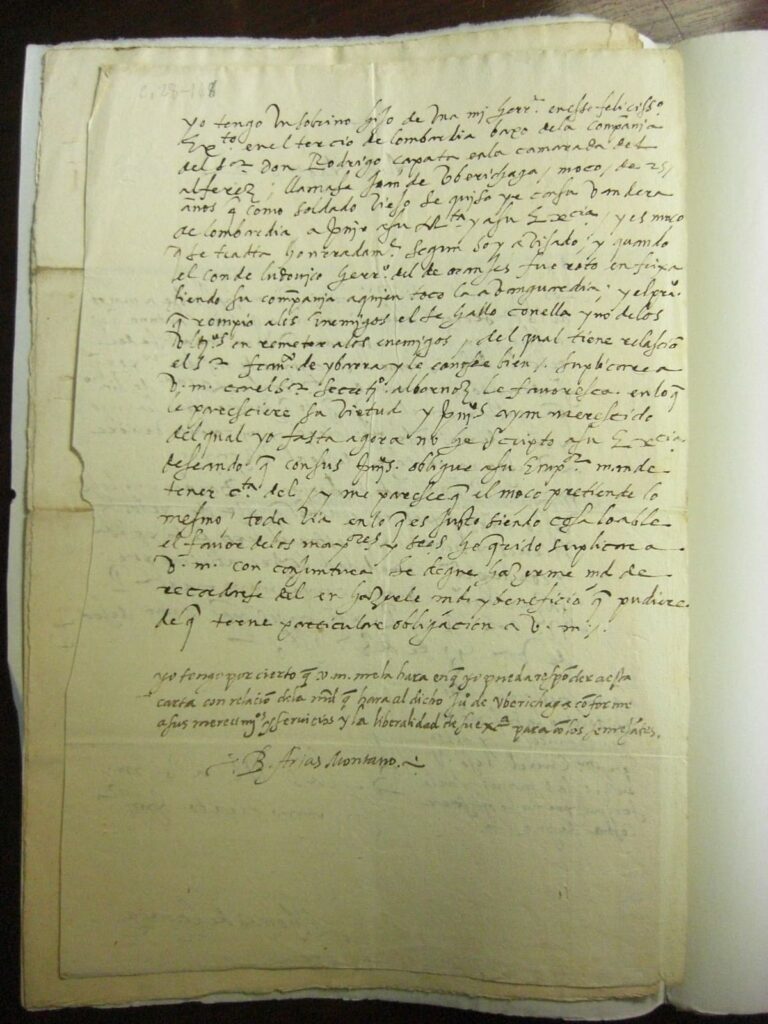 C. 28-168
yo tengo un sobrino hijo de una mi herr.ª en esse feliciss.º
Ex.to en el tercio de lombardia baxo de la compañia
del s.or Don Rodrigo çapata en la camarada del
alferez, llamase Joan de Vberichaga, moço, de 25,
años q como soldado viejo se quiso yr con su vandera
de lombardia a su M.ta y a su Ex.cia, y es moço
q se tratta honrradam.te segun soy avisado, y quando
el Conde ludovico herr.º del de oranjes fue roto en frixa
siendo su compañia a quien toco la abanguardia, y el pr.º
q rompio a los enemigos el se hallo con ella y uno de los
en remeter a los enemigos, del qual tiene relasción
el s.or de ybarra y le conosçe bien. Suplicare a
v. m. con el s.or Secret.º albornoz le favoresca. en lo q
le paresciere su virtud y ayan merescido
del qual yo hasta agora no he scripto a su Ex.cia
deseando q con sus obligue a su mande
tener c.ta del, y me paresçe q el moço pretende lo
mesmo, toda via en lo q es justo siendo cosa loable
el favor de los mayores y he qrido suplicar a
v. m. con se degne hazerme md de
recordarse del en hazerle md y beneficio q pudiere.
de q terne particular obligacion a v. m.
yo tengo por cierto q v. m. me la hara en q yo pueda respõder a esta
carta con relació de la md q hara al dicho Ju.º de Vberichaga cõforme
a sus merecim.os y servicios y la liberalidad de su ex.ª para cõ los semejãtes.
B. Arias Montano.